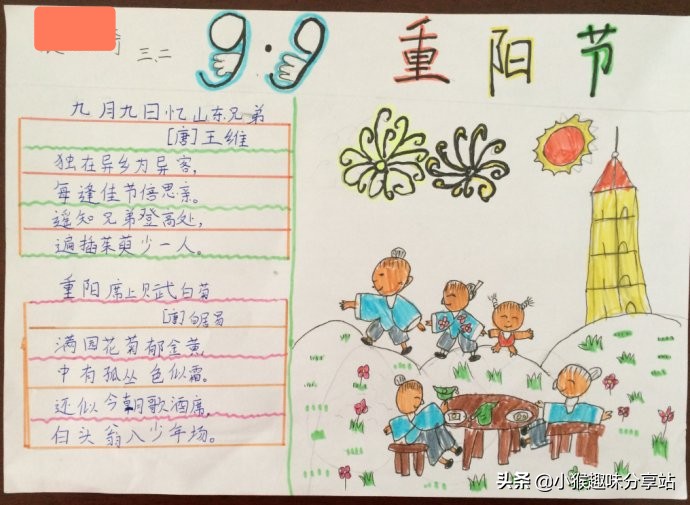 三.二
9·9 重阳节
九月九日忆山东兄弟
[唐]王维
独在异乡为异客,
每逢佳节倍思亲。
遥知兄弟登高处,
遍插茱萸少一人。
重阳席上赋白菊
[唐]白居易
满园花菊郁金黄,
中有孤丛色似霜。
还似今朝歌酒席,
白头翁入少年场。
头条 @小猴趣味分享站